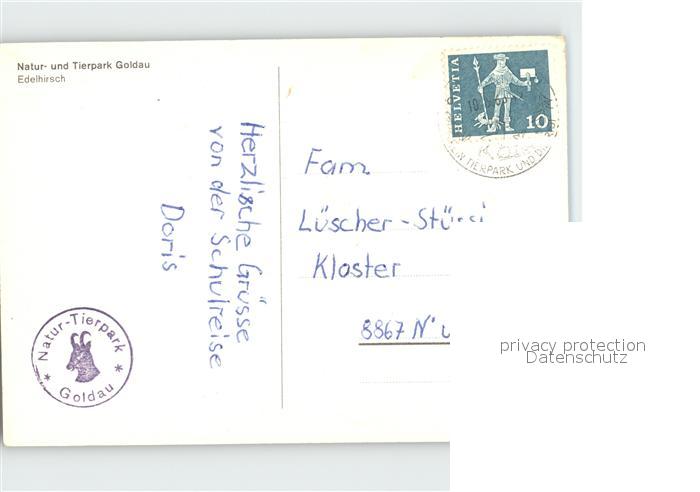 Natur- und Tierpark Goldau
Edelhirsch
Herzlische Grüsse
von der Schulreise
Doris
Natur-Tierpark
Goldau
HELVETIA
10
TIERPARK UND
Fam.
Lüscher-
Kloster
8867
privacy protection
Datenschutz